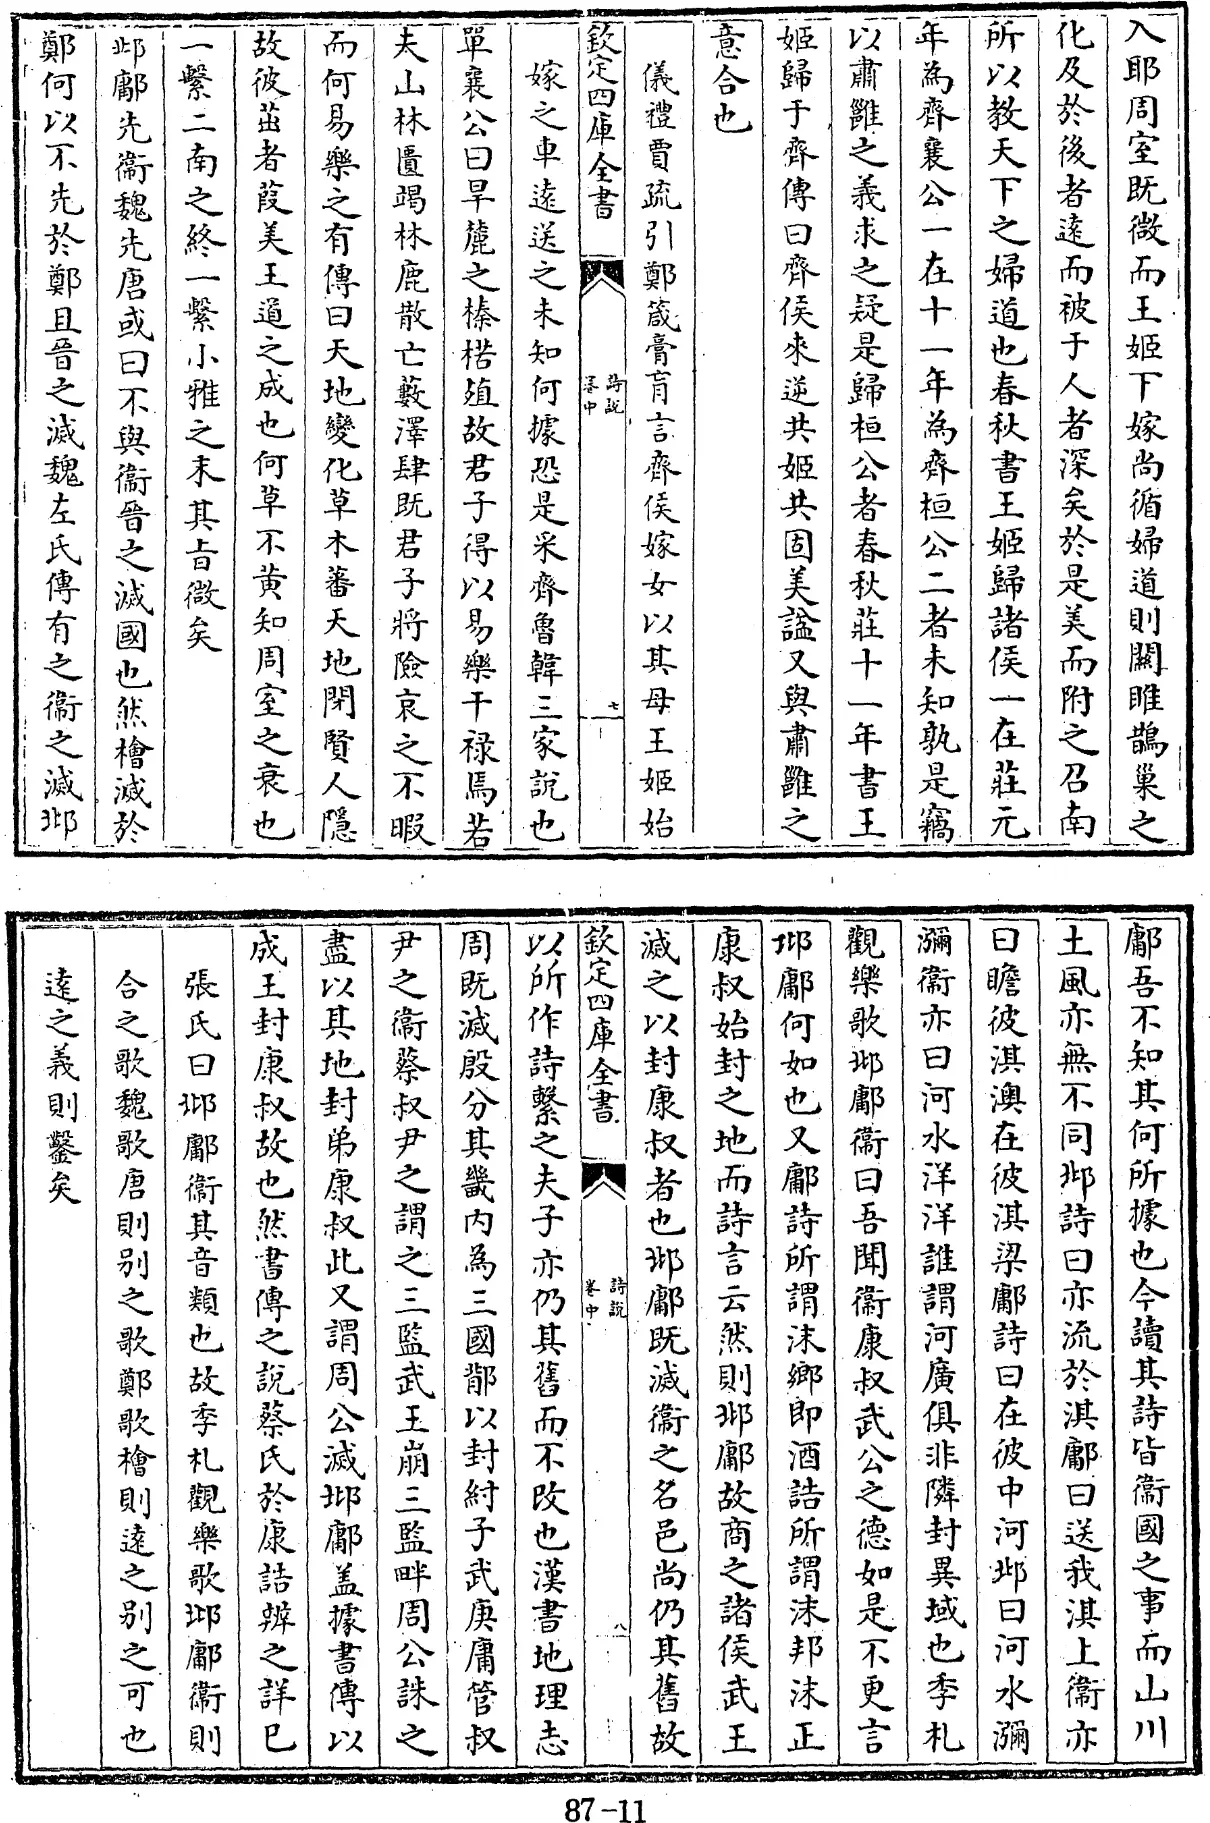 入耶周室既微而王姬下嫁尚循婦道則關雎鵲巢之
化及於後者逺而被于人者深矣於是美而附之召南
所以教天下之婦道也春秋書王姬歸諸侯一在莊元
年為齊襄公一在十一年為齊桓公二者未知孰是竊
以肅雝之義求之疑是歸桓公者春秋莊十一年書王
姬歸于齊傳曰齊侯來逆共姬共固美諡又與肅雝之
意合也
儀禮賈疏引鄭箴膏肓言齊侯嫁女以其母王姬始
欽定四庫全書
詩說
卷中
七
嫁之車逺送之未知何據恐是采齊魯韓三家說也
單襄公曰旱麓之榛楛殖故君子得以易樂干禄焉若
夫山林匱竭林鹿散亡藪澤肆既君子將險哀之不暇
而何易樂之有傳曰天地變化草木蕃天地閉賢人隱
故彼茁者葭美王道之成也何草不黄知周室之衰也
一繫二南之終一繫小雅之末其㫖微矣
邶鄘先衞魏先唐或曰不與衞晉之滅國也然檜滅於
鄭何以不先於鄭且晉之滅魏左氏傳有之衞之滅邶
鄘吾不知其何所據也今讀其詩皆衞國之事而山川
土風亦無不同邶詩曰亦流於淇鄘曰送我淇上衞亦
曰瞻彼淇澳在彼淇梁鄘詩曰在彼中河邶曰河水瀰
瀰衞亦曰河水洋洋誰謂河廣俱非隣封異域也季札
觀樂歌邶鄘衞曰吾聞衞康叔武公之德如是不更言
邶鄘何如也又鄘詩所謂沬鄉即酒誥所謂沬邦沬正
康叔始封之地而詩言云然則邶鄘故商之諸侯武王
滅之以封康叔者也邶鄘既滅衞之名邑尚仍其舊故
欽定四庫全書
詩說
卷中
八
以所作詩繫之夫子亦仍其舊而不改也漢書地理志
周既滅殷分其畿内為三國鄁以封紂子武庚庸管叔
尹之衞蔡叔尹之謂之三監武王崩三監畔周公誅之
盡以其地封弟康叔此又謂周公滅邶鄘蓋據書傳以
成王封康叔故也然書傳之說蔡氏於康誥辨之詳已
張氏曰邶鄘衞其音類也故季札觀樂歌邶鄘衞則
合之歌魏歌唐則别之歌鄭歌檜則逺之别之可也
逺之義則鑿矣
87-11